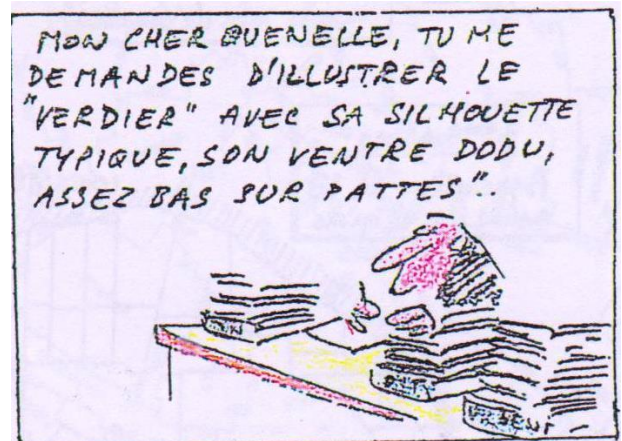 MON CHER QUENELLE, TU ME
DEMANDES D'ILLUSTRER LE
"VERDIER" AVEC SA SILHOUETTE
TYPIQUE, SON VENTRE DODU,
ASSEZ BAS SUR PATTES"..